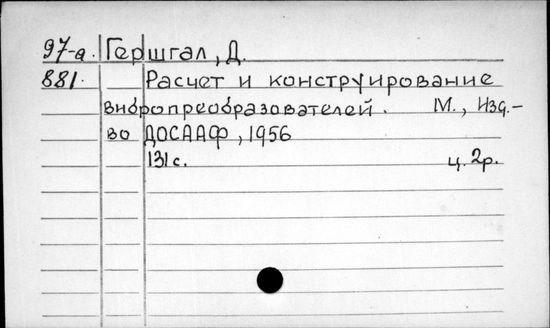 97-а. Гершгал, Д.
881. Расчет и конструирование
вибропреобразователей. М., Изд.-
во ДОСААФ, 1956
131 с. ц. 2р.